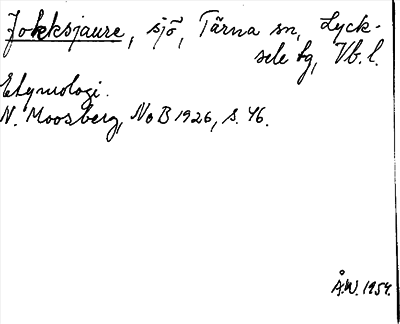 Jokksjaure, sjö, Tärna sn, Lyck-
sele tg, Vb. l.
Etymologi.
N. Moosberg, NoB 1926, s. 46.
Å.W. 1954.